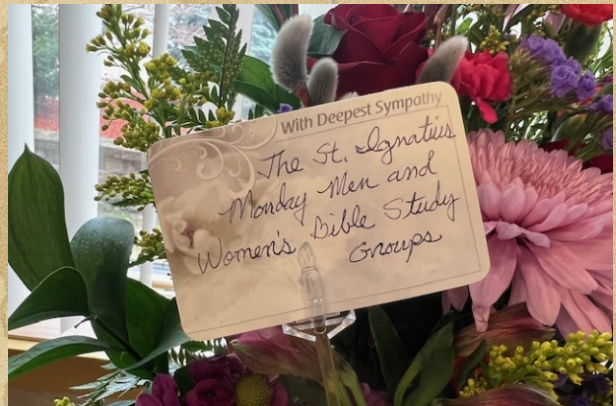 With Deepest Sympathy
The St. Ignatius
Monday Men and
Women's Bible Study
Groups